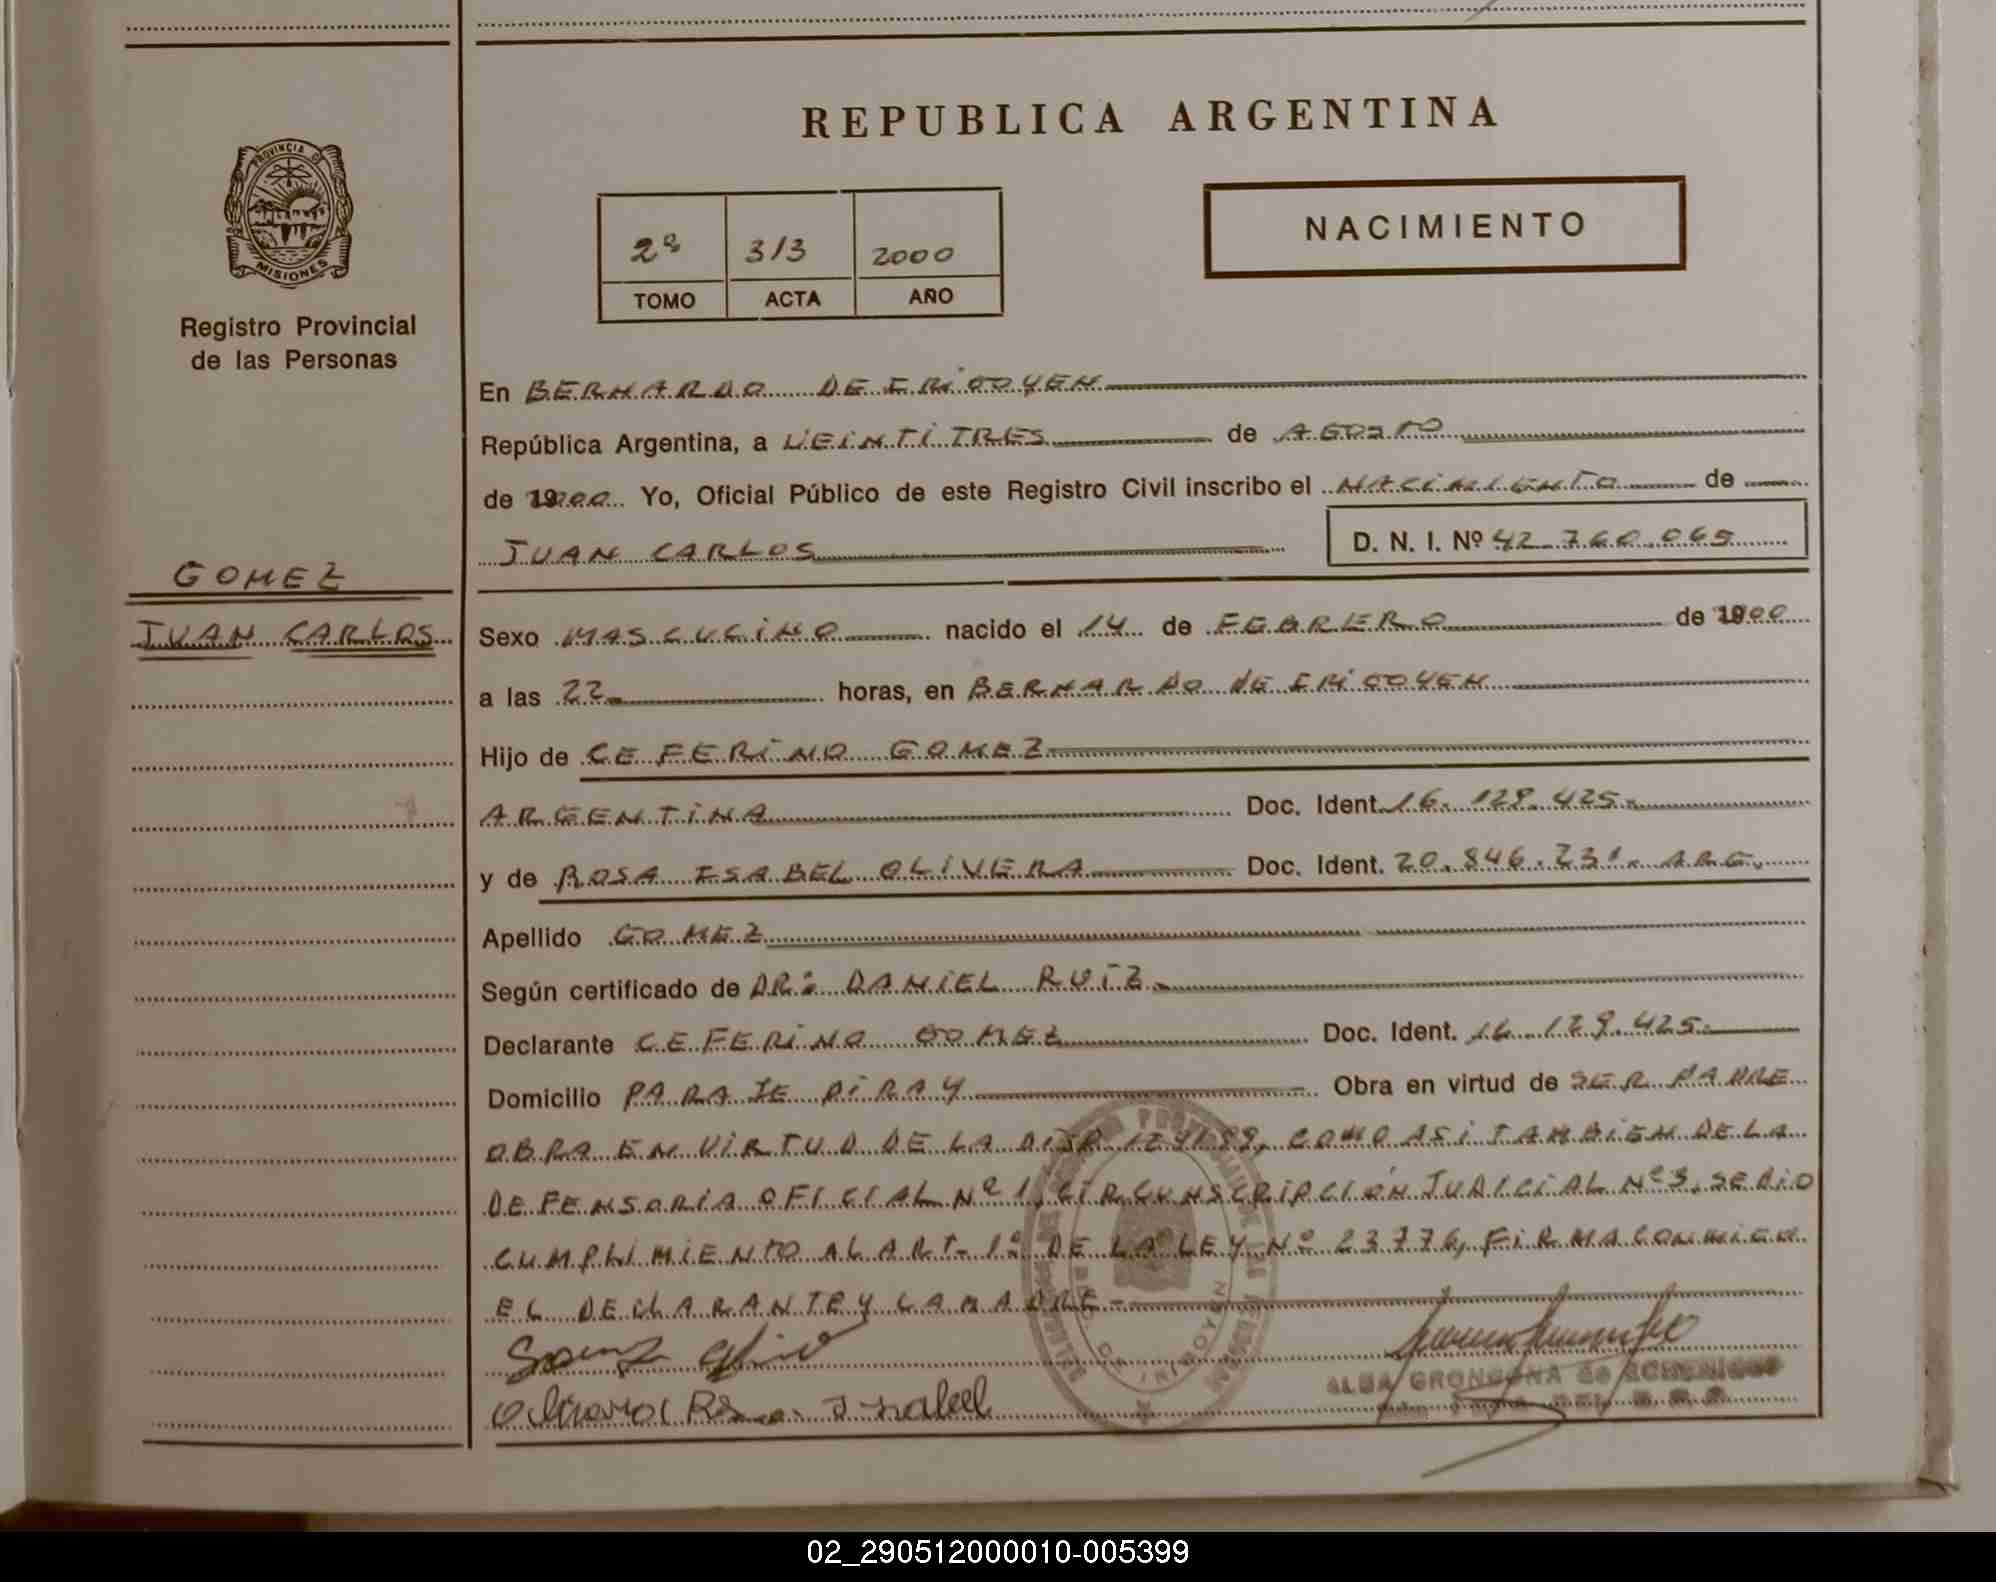 REPUBLICA ARGENTINA
PROVINCIA DE
MISIONES
Registro Provincial
de las Personas
2º 313 2000
TOMO ACTA AÑO
NACIMIENTO
En BERNARDO DE IRIGOYEN
República Argentina, a VEINTITRES de AGOSTO
de 2000 Yo, Oficial Público de este Registro Civil inscribo el NACIMIENTO de
JUAN CARLOS D. N. I. Nº 42.760.065
GOMEZ
JUAN CARLOS
Sexo MASCULINO nacido el 14 de FEBRERO de 2000
a las 22 horas, en BERNARDO DE IRIGOYEN
Hijo de CEFERINO GOMEZ
ARGENTINA Doc. Ident. 16.129.425.
y de ROSA ISABEL OLIVERA Doc. Ident. 20.846.231. ARG.
Apellido GOMEZ
Según certificado de DR: DANIEL RUIZ
Declarante CEFERINO GOMEZ Doc. Ident. 16.129.425.
Domicilio PARAJE PIRAY Obra en virtud de SER PADRE
OBRA EN VIRTUD DE LA DISP. 124/99, COMO ASI TAMBIEN DE LA
DEFENSORIA OFICIAL Nº 1, CIRCUNSCRIPCION JUDICIAL Nº 3, SE DIO
CUMPLIMIENTO AL ART. 1º DE LA LEY Nº 23776, FIRMA CONMIGO
EL DECLARANTE Y LA MADRE-
Olivera Rosa Isabel
ALBA GRONCONA de
02_290512000010-005399